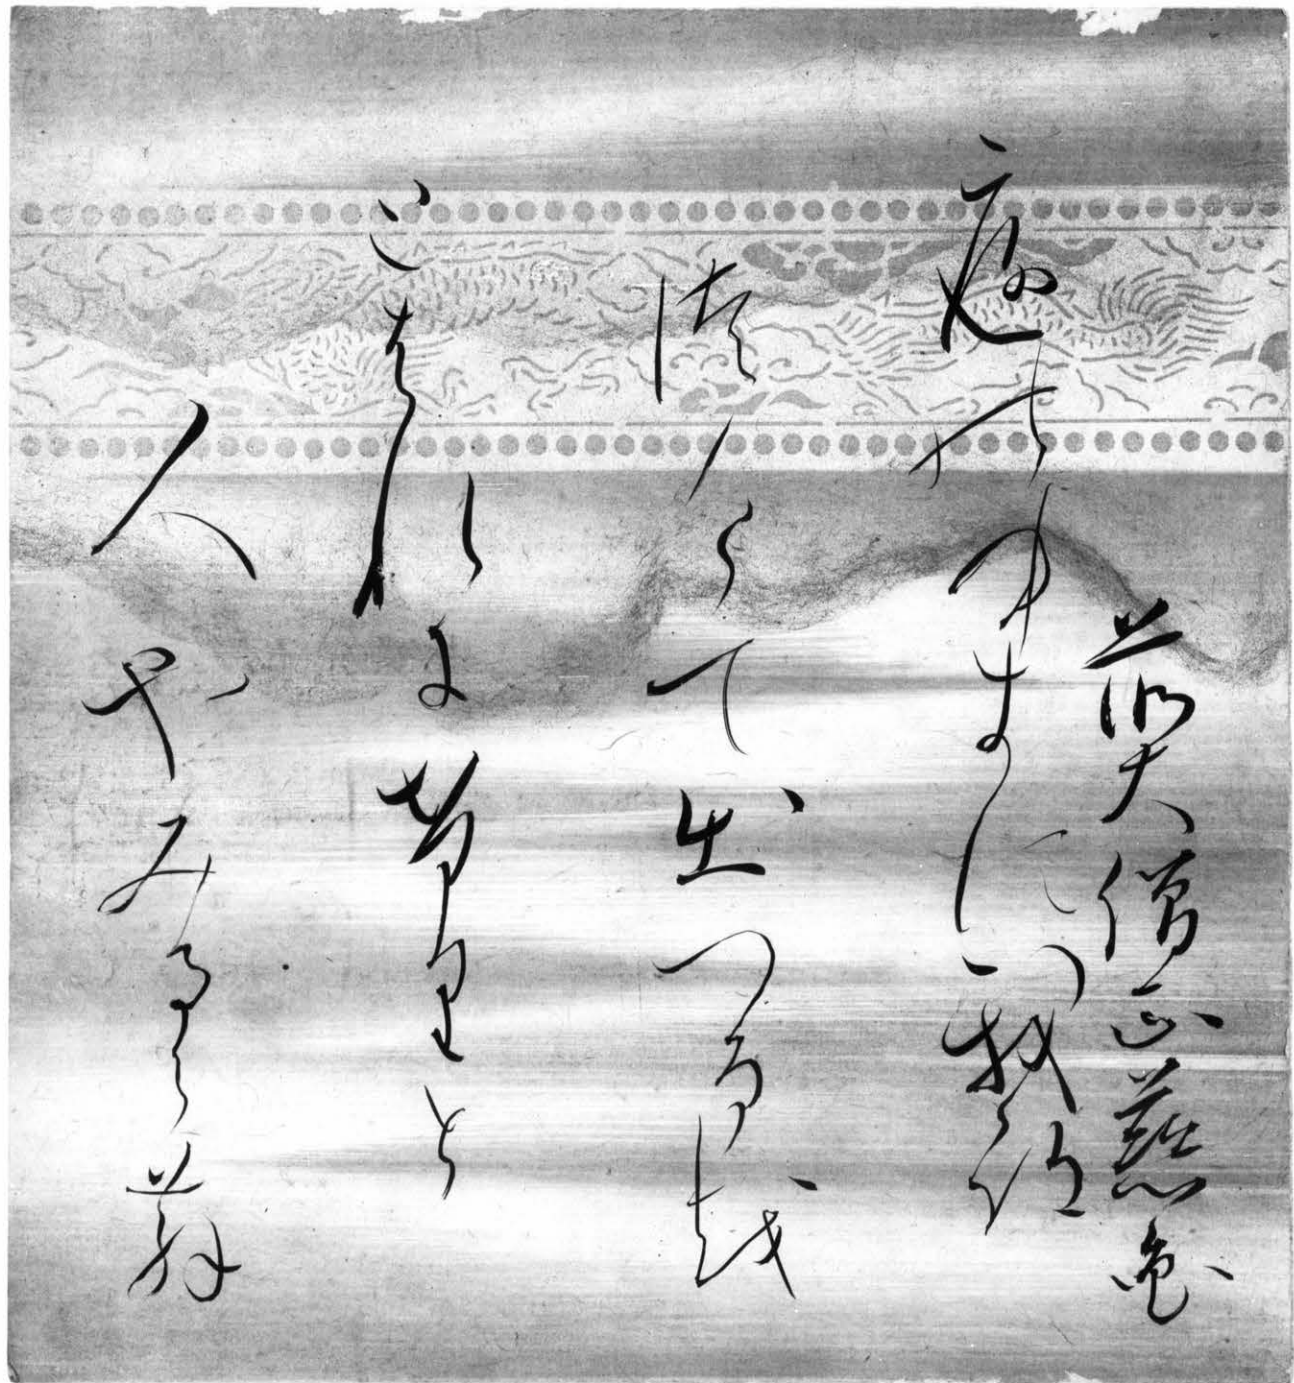 前大僧正慈円
庭のゆきに我跡
つけて出つるを
とはれにけりと
人やみるらむ